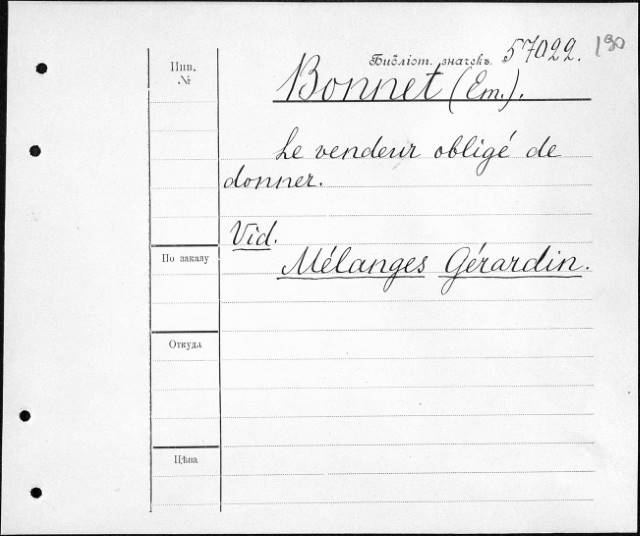 Инв. №
Библіот. значекъ. 57022. 130
Bonnet (Em.).
Le vendeur obligé de
donner.
Vid.
Mélanges Gérardin.
По заказу
Откуда
Цѣна